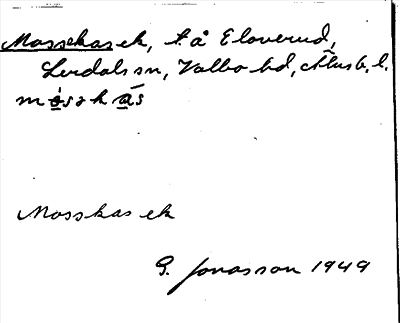 Mossekasek, t.å Eloverud,
Lerdals sn, Valbo hd, Älvsb. l.
Mosskasek
G. Jonasson 1949